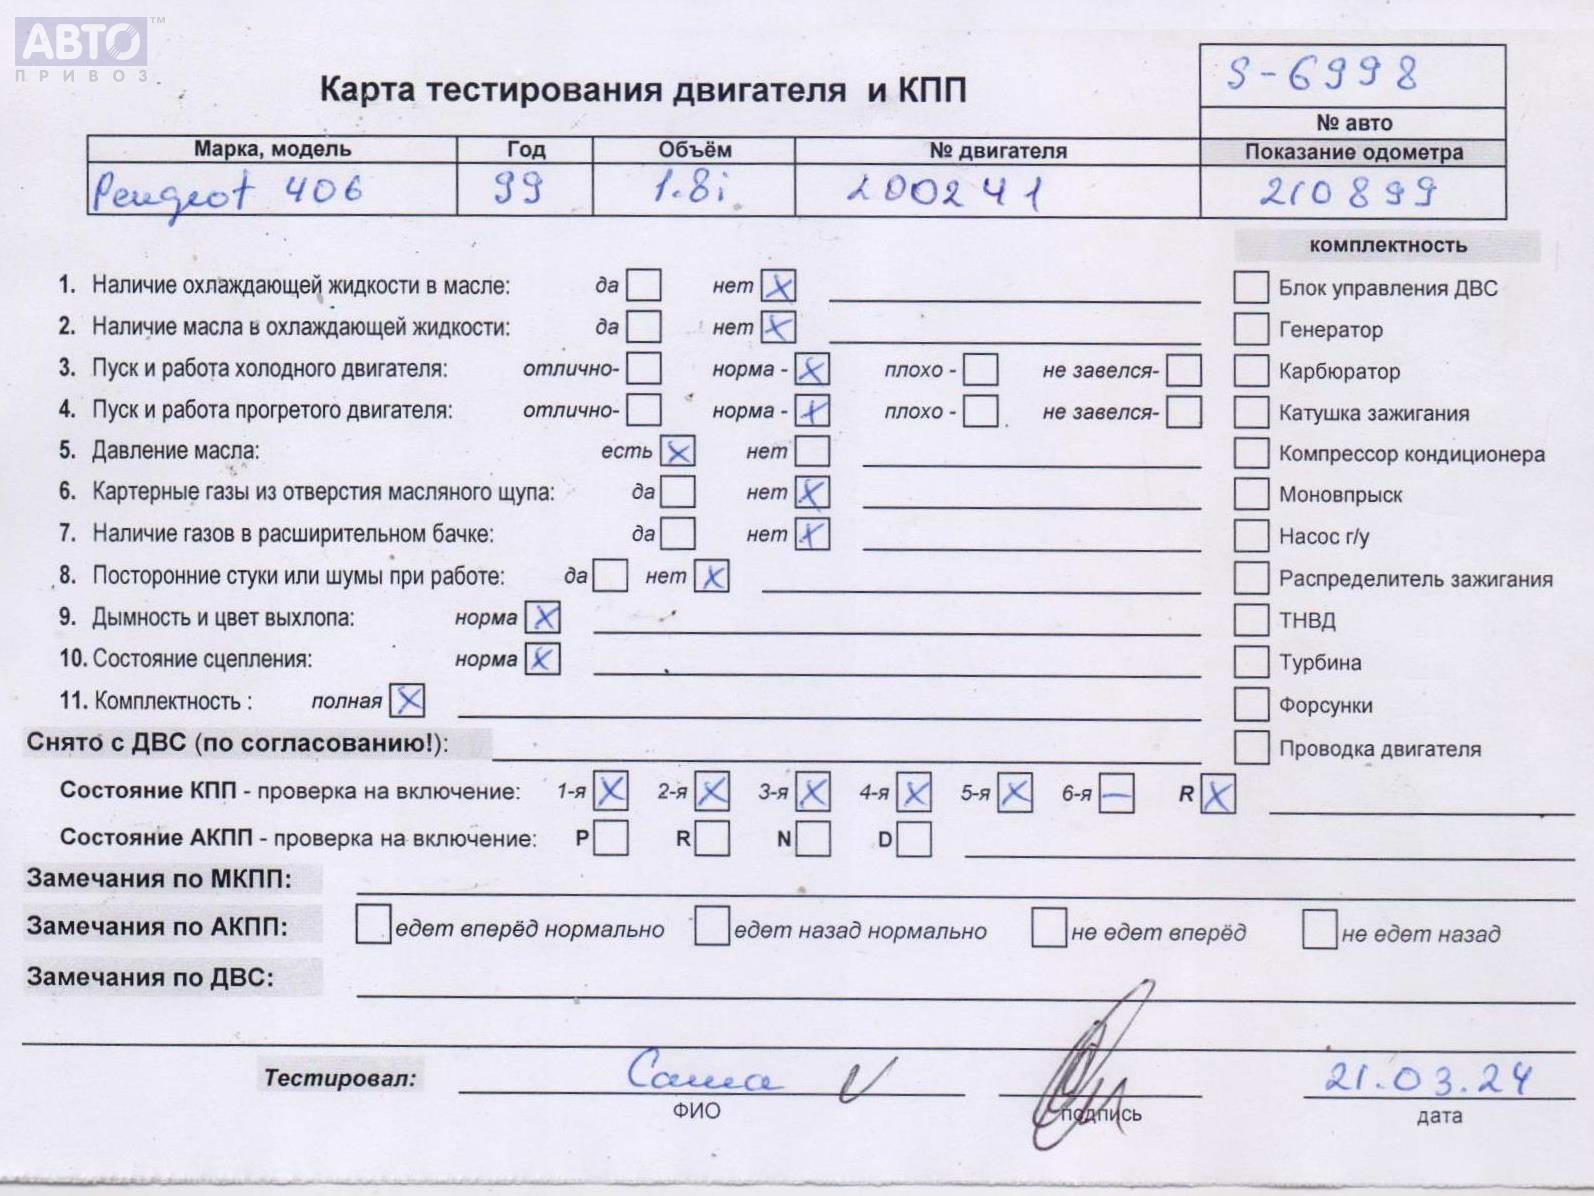 АВТО™
ПРИВОЗ
S-6998
Карта тестирования двигателя и КПП
№ авто
Марка, модель Год Объём № двигателя Показание одометра
Peugeot 406 99 1.8i 200241 210899
комплектность
1. Наличие охлаждающей жидкости в масле: да нет X
Блок управления ДВС
2. Наличие масла в охлаждающей жидкости: да нет X
Генератор
3. Пуск и работа холодного двигателя: отлично- норма - X плохо - не завелся-
Карбюратор
4. Пуск и работа прогретого двигателя: отлично- норма - X плохо - не завелся-
Катушка зажигания
5. Давление масла: есть X нет
Компрессор кондиционера
6. Картерные газы из отверстия масляного щупа: да нет X
Моновпрыск
7. Наличие газов в расширительном бачке: да нет X
Насос г/у
8. Посторонние стуки или шумы при работе: да нет X
Распределитель зажигания
9. Дымность и цвет выхлопа: норма X
ТНВД
10. Состояние сцепления: норма X
Турбина
11. Комплектность : полная X
Форсунки
Снято с ДВС (по согласованию!):
Проводка двигателя
Состояние КПП - проверка на включение: 1-я X 2-я X 3-я X 4-я X 5-я X 6-я — R X
Состояние АКПП - проверка на включение: P R N D
Замечания по МКПП:
Замечания по АКПП: едет вперёд нормально едет назад нормально не едет вперёд не едет назад
Замечания по ДВС:
Тестировал: Саша 21.03.24
ФИО подпись дата